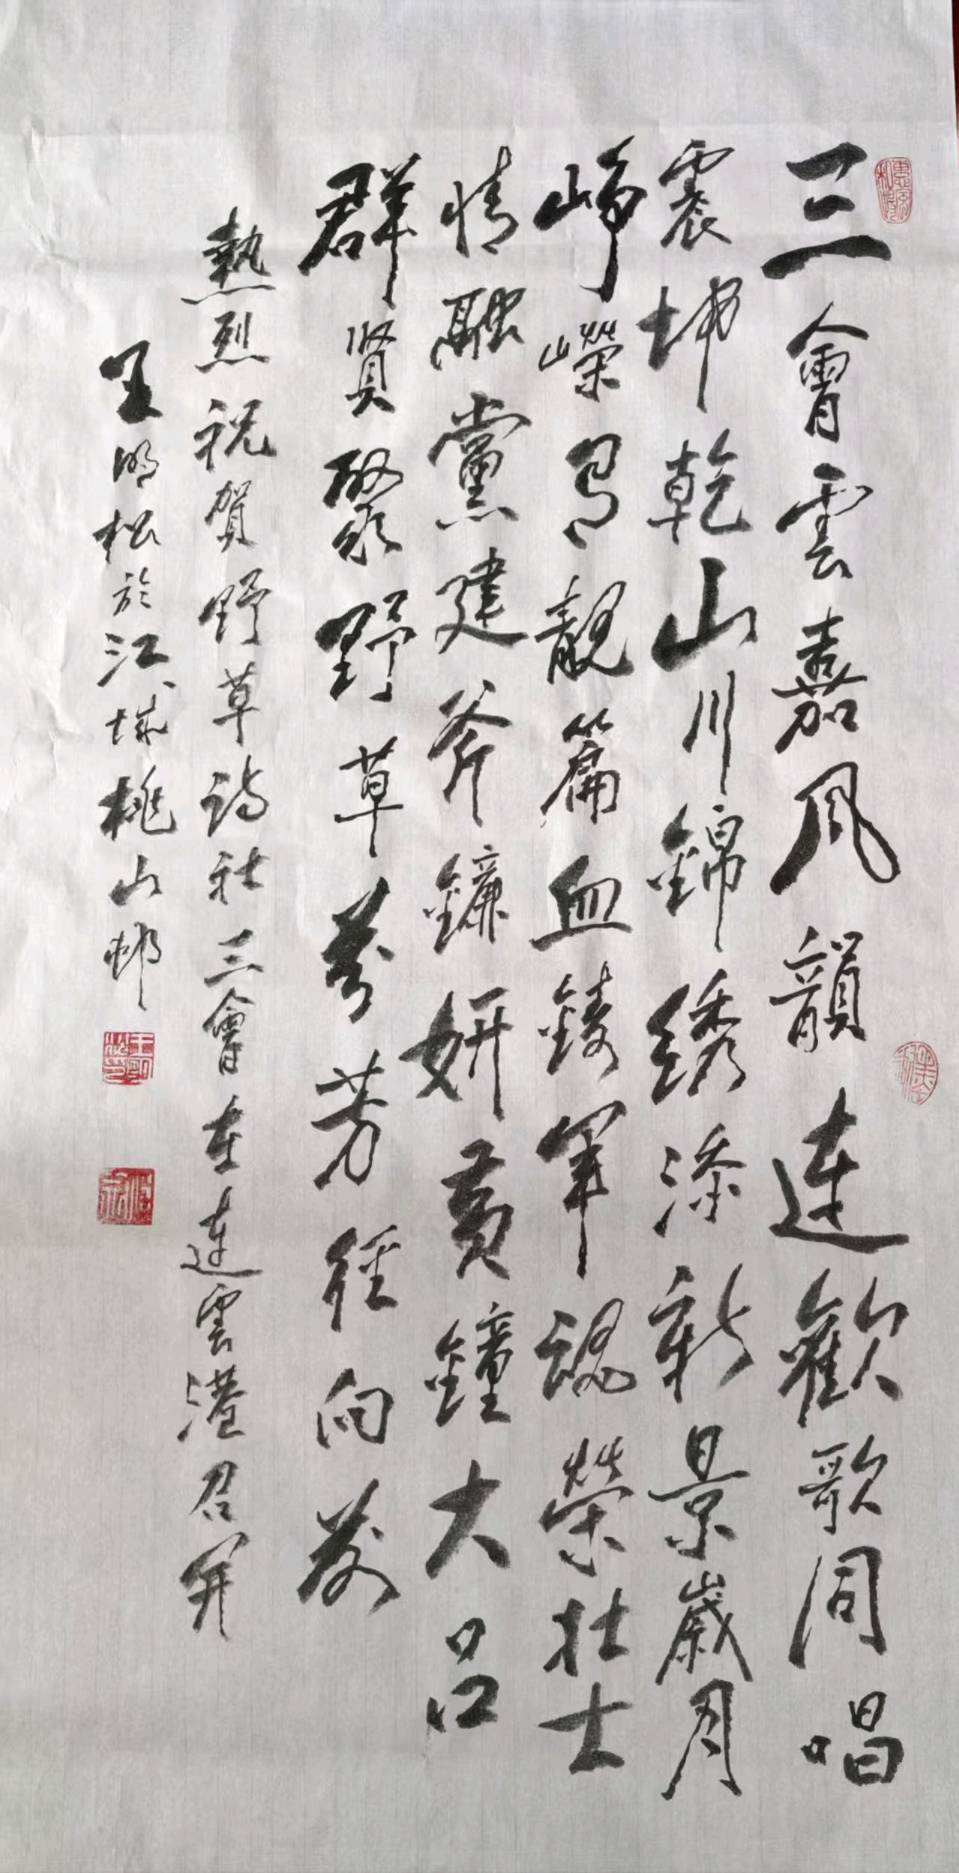 三會雲嘉風韻連歡歌同唱
震坤乾山川錦绣添新景歲月
崢嶸有靓篇血鑄軍魂榮壯士
情融黨建斧鐮妍黃鐘大吕
群贤聚野草芬芳径向前
熱烈祝賀野草诗社三會在連雲港召开
王明松於江城桃山邨